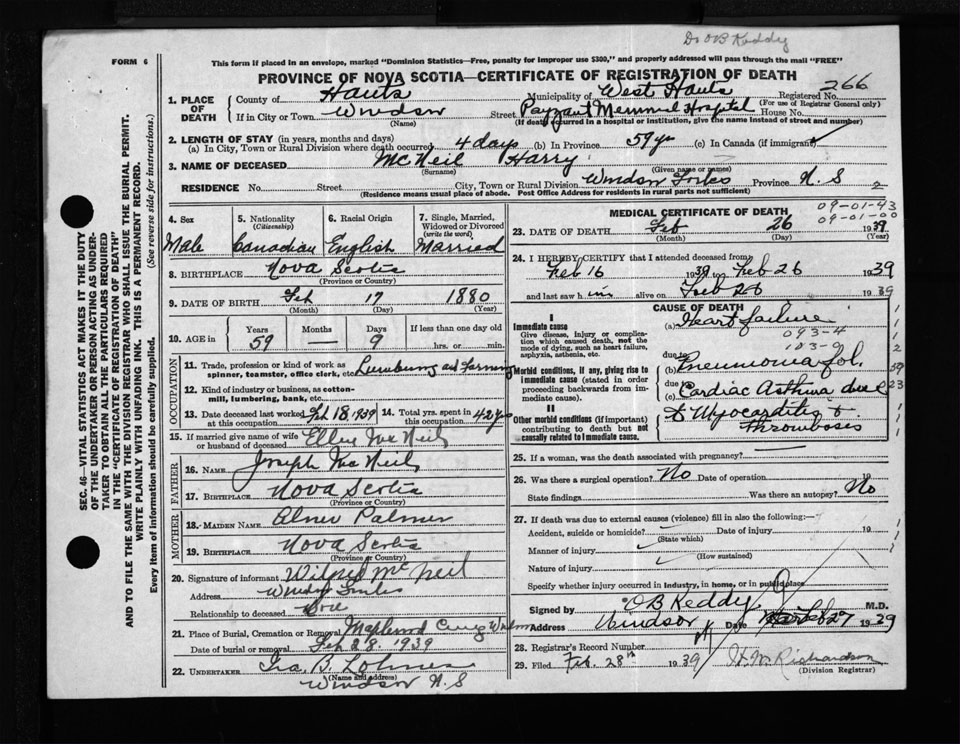 Dr OB Keddy
FORM 6
This form if placed in an envelope, marked "Dominion Statistics—Free, penalty for improper use $300," and properly addressed will pass through the mail "FREE"
PROVINCE OF NOVA SCOTIA—CERTIFICATE OF REGISTRATION OF DEATH
1. PLACE OF DEATH
County of Hants Municipality of West Hants Registered No. 266
(For use of Registrar General only)
If in City or Town Windsor Street Payzant Memorial Hospital House No.
(Name) (If death occurred in a hospital or institution, give the name instead of street and number)
2. LENGTH OF STAY (in years, months and days)
(a) In City, Town or Rural Division where death occurred 4 days (b) In Province 59 yrs (c) In Canada (if immigrant)
3. NAME OF DECEASED McNeil Harry
(Surname) (Given name or names)
RESIDENCE No. Street City, Town or Rural Division Windsor Forks Province N. S 2
(Residence means usual place of abode. Post Office Address for Residents in rural parts not sufficient)
SEC. 46—VITAL STATISTICS ACT MAKES IT THE DUTY
OF THE UNDERTAKER OR PERSON ACTING AS UNDERTAKER TO OBTAIN ALL THE PARTICULARS REQUIRED
IN THE "CERTIFICATE OF REGISTRATION OF DEATH"
AND TO FILE THE SAME WITH THE DIVISION REGISTRAR WHO SHALL ISSUE THE BURIAL PERMIT.
WRITE PLAINLY WITH UNFADING INK. THIS IS A PERMANENT RECORD.
Every item of information should be carefully supplied. (See reverse side for instructions.)
4. Sex Male
5. Nationality (Citizenship) Canadian
6. Racial Origin English
7. Single, Married, Widowed or Divorced (write the word) Married
8. BIRTHPLACE Nova Scotia
(Province or Country)
9. DATE OF BIRTH Feb 17 1880
(Month) (Day) (Year)
10. AGE in Years Months Days If less than one day old
59 — 9 hrs. or min.
OCCUPATION
11. Trade, profession or kind of work as spinner, teamster, office clerk, etc. Lumbering and Farming
12. Kind of industry or business, as cotton-mill, lumbering, bank, etc.
13. Date deceased last worked at this occupation Feb 18 1939 14. Total yrs. spent in this occupation 42 yrs
15. If married give name of wife or husband of deceased Ellen McNeil
FATHER
16. NAME Joseph McNeil
17. BIRTHPLACE Nova Scotia
(Province or Country)
MOTHER
18. MAIDEN NAME Palmer
19. BIRTHPLACE Nova Scotia
(Province or Country)
20. Signature of informant Wilfred McNeil
Address Windsor Forks
Relationship to deceased
21. Place of Burial, Cremation or Removal Maplewood
Date of burial or removal Feb 28, 1939
22. UNDERTAKER Ira. B.
(Name and address)
Windsor N. S
MEDICAL CERTIFICATE OF DEATH
09-01-43
09-01-00
23. DATE OF DEATH Feb 26 1939
(Month) (Day) (Year)
24. I HEREBY CERTIFY that I attended deceased from
Feb 16 1939 to Feb 26 1939
and last saw him alive on Feb 26 1939
CAUSE OF DEATH
I
Immediate cause
Give disease, injury or complication which caused death, not the mode of dying, such as heart failure, asphyxia, asthenia, etc.
(a) Heart failure
093-4
due to
Morbid conditions, if any, giving rise to immediate cause (stated in order proceeding backwards from immediate cause).
(b) Pneumonia
due to
(c) Cardiac Asthma due
II
Other morbid conditions (if important) contributing to death but not causally related to immediate cause.
to Myocarditis &
Thrombosis
25. If a woman, was the death associated with pregnancy?
26. Was there a surgical operation? No Date of operation 19
State findings Was there an autopsy? No
27. If death was due to external causes (violence) fill in also the following:—
Accident, suicide or homicide? Date of injury 19
(State which)
Manner of injury
(How sustained)
Nature of injury
Specify whether injury occurred in industry, in home, or in public place
Signed by OB Keddy M.D.
Address Windsor Date Feb 27 1939
28. Registrar's Record Number
29. Filed Feb. 28th 1939 Richardson
(Division Registrar)